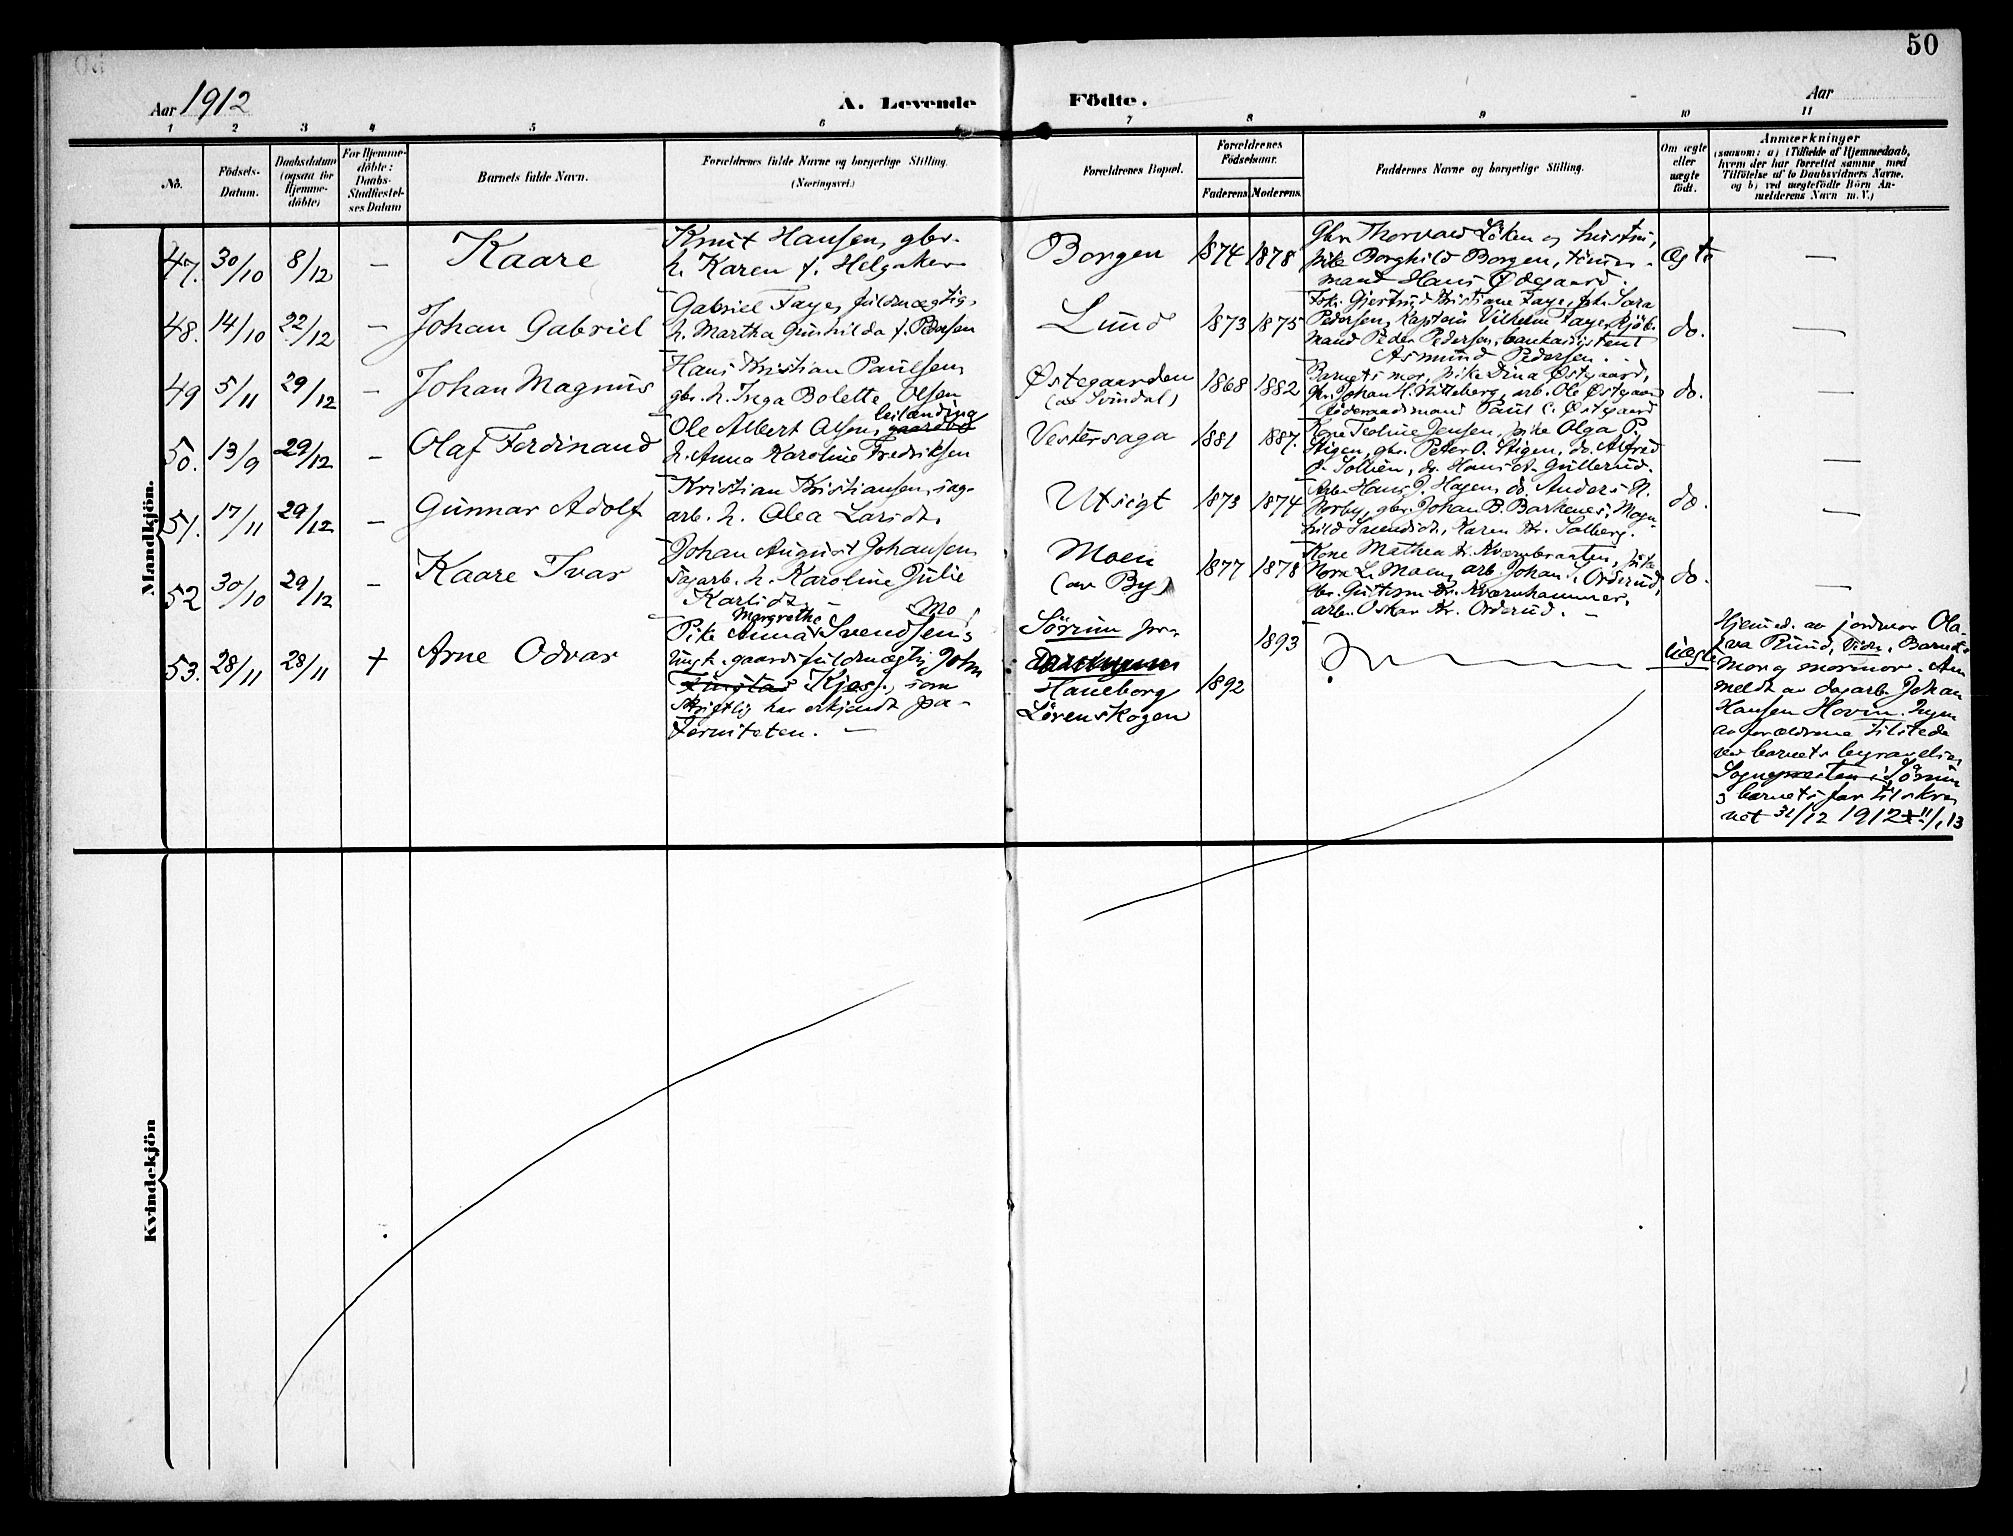 50
Aar 1912
A. Levende
Födte.
Aar
1 2 3 4 5 6 7 8 9 10 11
No.
Födsels-
Datum.
Daabsdatum
(ogsaa for
Hjemme-
döbte)
For Hjemme-
döbte:
Daabs-
Stadfæstel-
ses Datum
Barnets fulde Navn.
Forældrenes fulde Navne og borgerlige Stilling.
(Næringsvei.)
Forældrenes Bopæl.
Forældrenes
Födselsaar.
Faderens.
Moderens.
Faddernes Navne og borgerlige Stilling.
Om ægte
eller
uægte
födt.
Anmærkninger
(saasom: a) i Tilfælde af Hjemmedaab,
hvem der har forrettet samme, med
Tilföielse af to Daabsvidners Navne,
og b) ved uægtefödte Börn An-
melderens Navn m. V.)
Mandkjön.
47. 30/10 8/12 — Kaare
Knut Hansen, gbr.
h. Karen f. Helgaker
Borgen 1874 1878
Gbr. Thorvald Löken og hustru,
pike Borghild Borgen, tömer-
mand Hans Ödegaard.
Ægte —
48. 14/10 22/12 — Johan Gabriel
Gabriel Faye, fuldmægtig,
h. Martha Gunhilda f. Pedersen
Lund 1873 1875
Frk. Gjertrud Kristiane Faye, frk. Sara
Pedersen, Kaptein Vilhelm Faye, Kjöb-
mand Peder Pedersen, bankassistent
Asmund Pedersen.
do. —
49 5/11 29/12 — Johan Magnus
Hans Kristian Paulsen,
gbr. h. Inga Bolette Olsen
Østegaarden
(av Svindal)
1868 1882
Barnets mor, pike Dina Østgaard,
gbr. Johan H. Viteberg, arb. Ole Østgaard
föderaadsmand Paul C. Østgaard
do. —
50. 13/9 29/12 — Olaf Ferdinand
Ole Albert Olsen, leilænding
h. Anna Karoline Fredriksen
Vestersaga 1881 1887.
Kone Teoline Jensen, pike Olga P.
Stigen, gbr. Peter O. Stigen, do. Alfred
do. Hans A. Gullerud.
—
51. 17/11 29/12 — Gunnar Adolf
Kristian Kristiansen, sag-
arb. h. Olea Larsdt.
Utsigt 1873 1874
Arb. Hans J. Hagen, do. Anders N.
Norby, gbr. Johan B. Barkenes, Magn-
hild Svendsdt, Karen Kr. Solberg.
do. —
52 30/10 29/12 — Kaare Ivar
Johan August Johansen
Sagarb. h. Karoline Julie
Karlsdt. —
Moen
(av By)
1877 1878
Kone Mathea Kr. Kværnbraaten, pike
Nora L. Moen, arb. Johan Orderud,
gbr. Gustav Kr. Kværnhammer,
arb. Oskar Kr. Orderud. —
do. —
53. 28/11 28/11 + Arne Odvar
Pike Anna Margrethe Svendsen Mo,
Ungk. gaardsfuldmægtig John
Finstad Kjos, som
skriftlig har erkjendt pa-
terniteten. —
Sörum
Haneborg
Lörenskogen
1892 1893
Uægte
Hjemed. av jordmor Ola-
va Ruud, Vidn. Barnets
mor og mormor. An
meldt av dagarb. Johan
Hansen Hovin. Ingen
av forældrene tilstede
ved barnets begravelse
Sognepresten i Sörum
og barnets far tilskre-
vet 31/12 1912 + 11/1 13
Kvindekjön